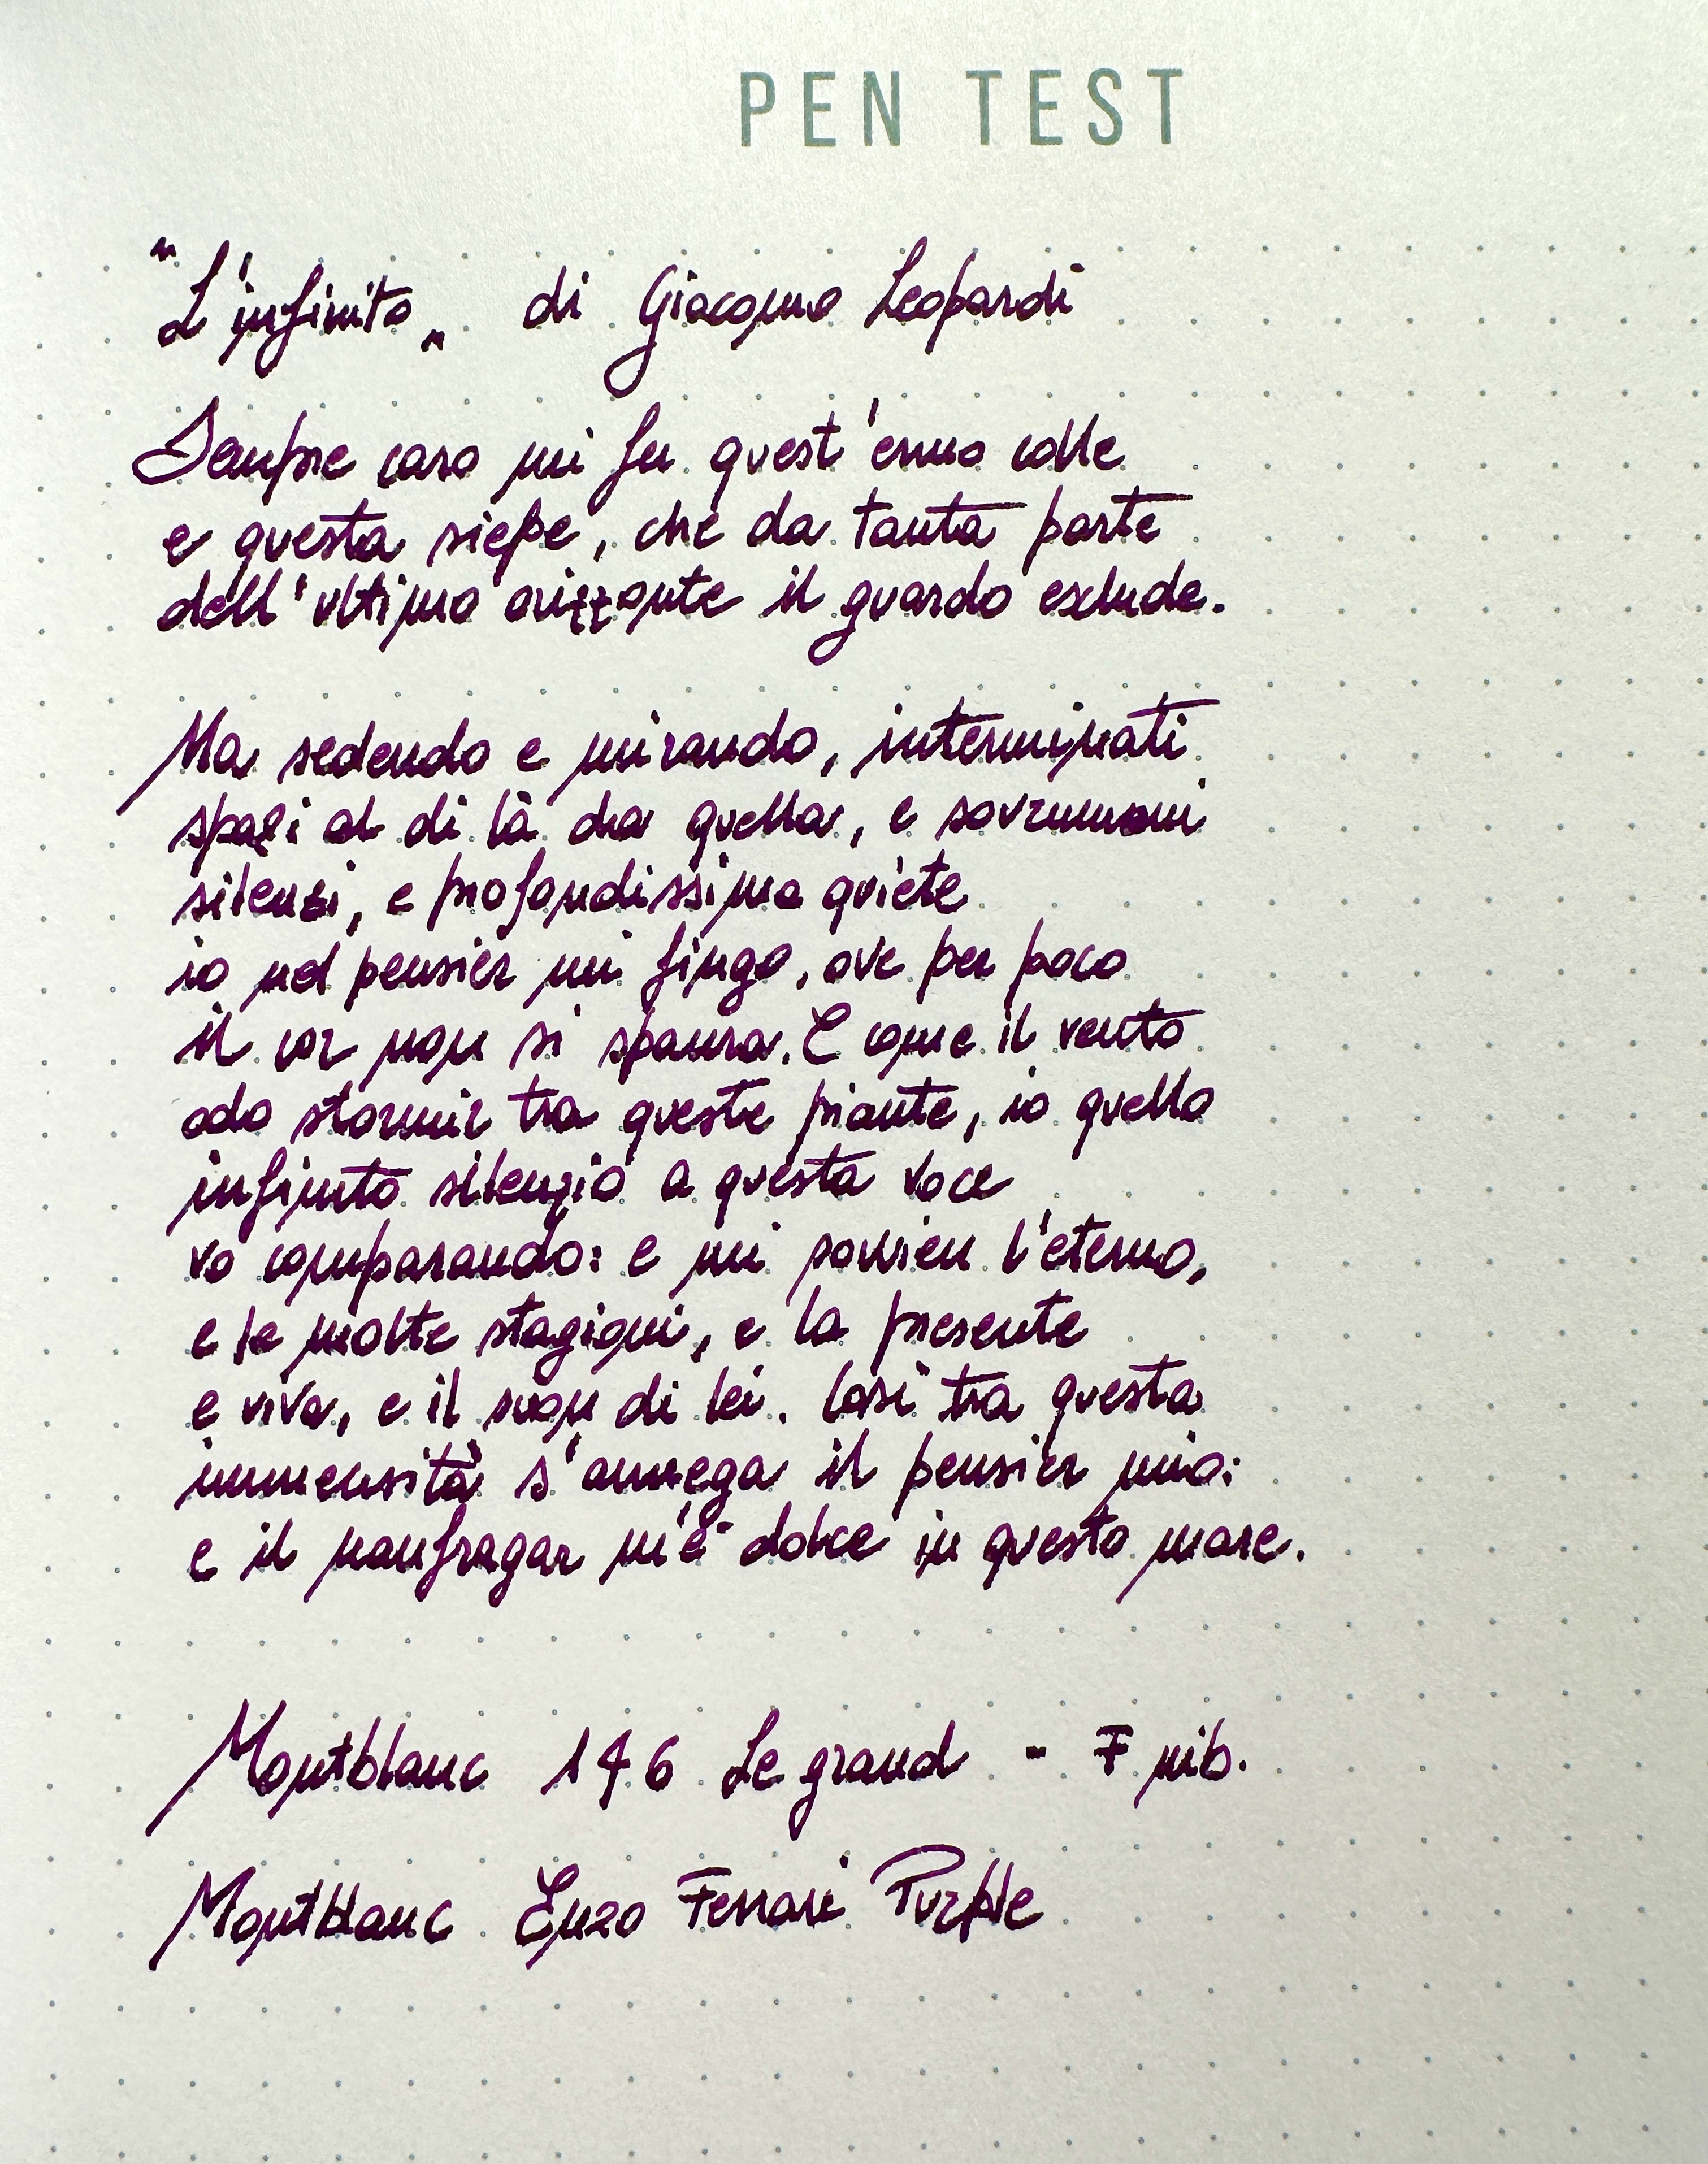 PEN TEST
"L'infinito„ di Giacomo Leopardi
Sempre caro mi fu quest'ermo colle
e questa siepe, che da tanta parte
dell'ultimo orizzonte il guardo esclude.
Ma sedendo e mirando, interminati
spazi al di là da quella, e sovrumani
silenzi, e profondissima quiete
io nel pensier mi fingo, ove per poco
il cor non si spaura. E come il vento
odo stormir tra queste piante, io quello
infinito silenzio a questa voce
vo comparando: e mi sovvien l'eterno,
e le molte stagioni, e la presente
e viva, e il suon di lei. Così tra questa
immensità s'annega il pensier mio:
e il naufragar m'è dolce in questo mare.
Montblanc 146 Le grand - F nib.
Montblanc Enzo Ferrari Purple